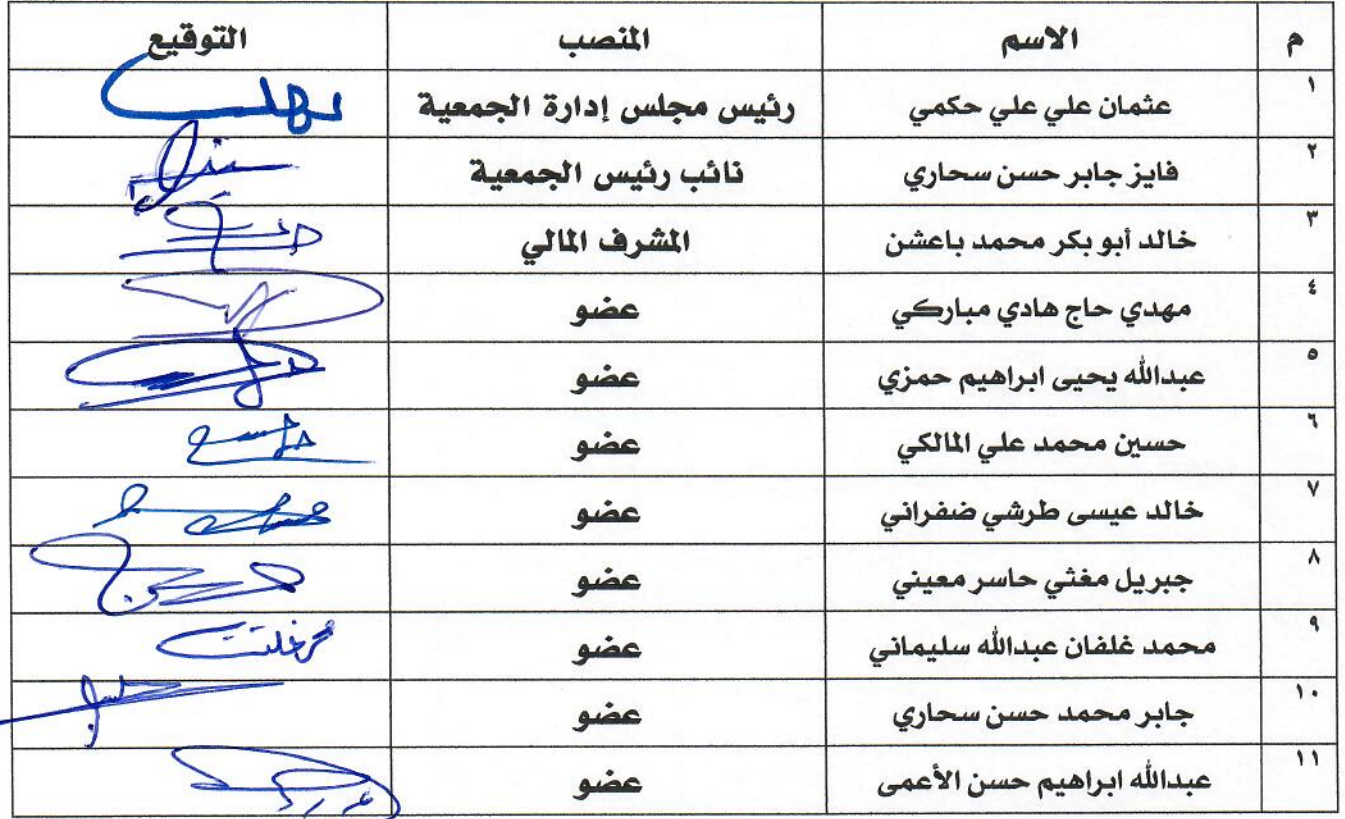 م الاسم المنصب التوقيع
١ عثمان علي علي حكمي رئيس مجلس إدارة الجمعية
٢ فايز جابر حسن سحاري نائب رئيس الجمعية
٣ خالد أبو بكر محمد باعشن المشرف المالي
٤ مهدي حاج هادي مباركي عضو
٥ عبدالله يحيى ابراهيم حمزي عضو
٦ حسين محمد علي المالكي عضو
٧ خالد عيسى طرشي ضفراني عضو
٨ جبريل مغثي حاسر معيني عضو
٩ محمد غلفان عبدالله سليماني عضو
١٠ جابر محمد حسن سحاري عضو
١١ عبدالله ابراهيم حسن الأعمى عضو